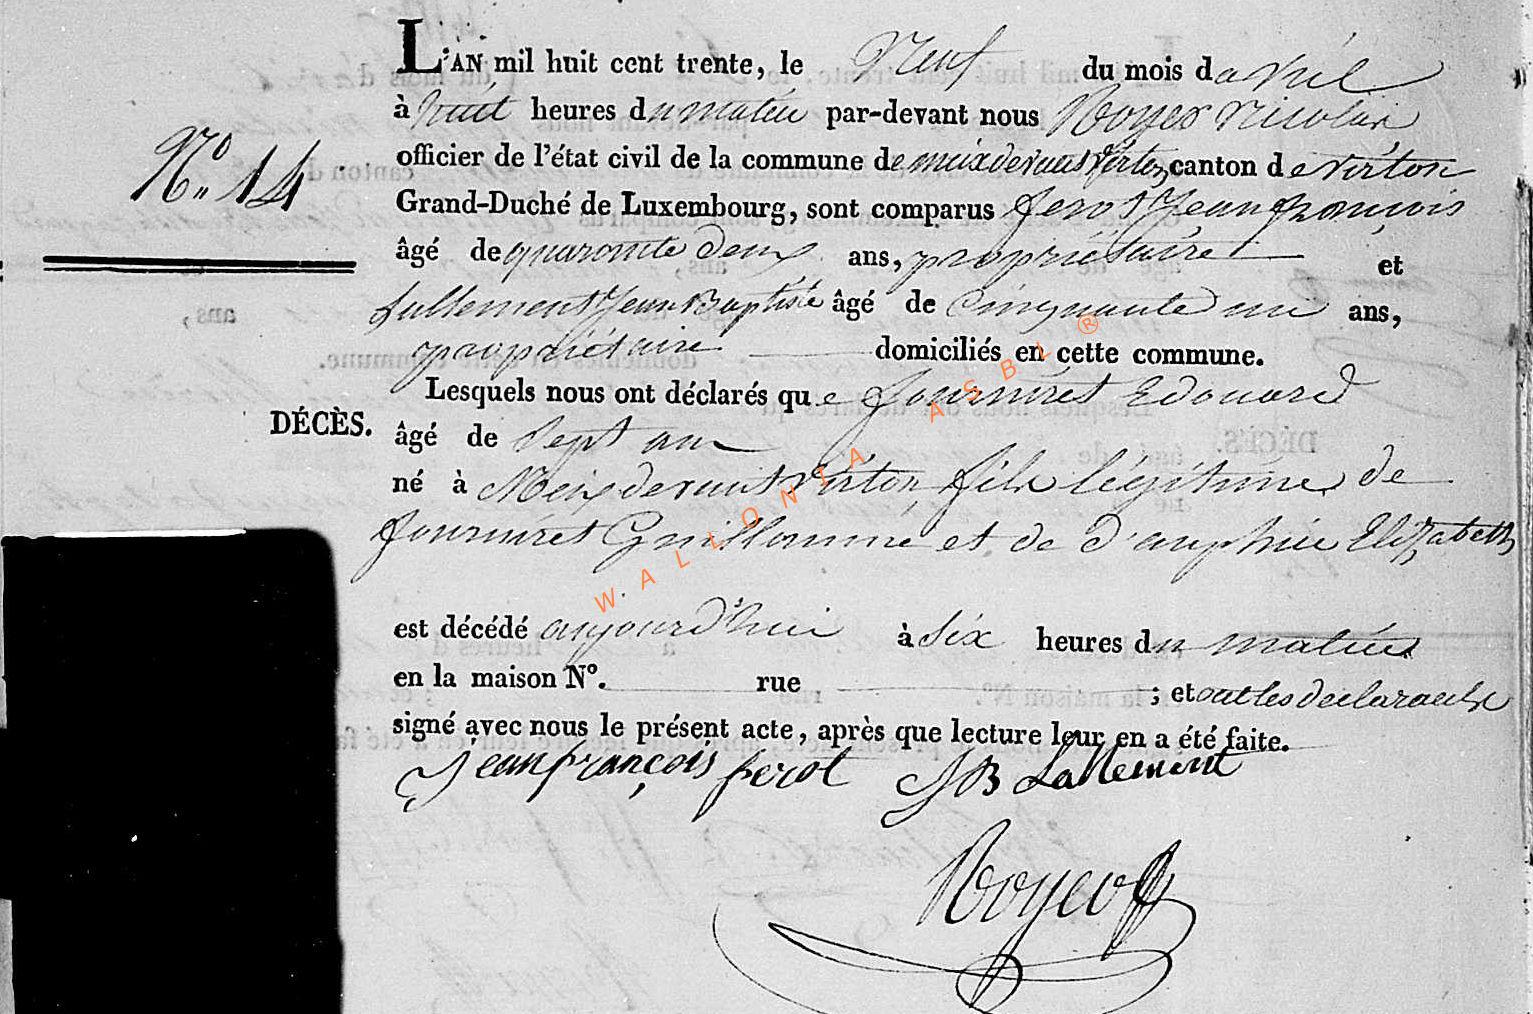 L'AN mil huit cent trente, le Neuf du mois d'avril
à huit heures du matin par-devant nous Royer Nicolas
N° 14
officier de l'état civil de la commune de meix devant virton, canton de virton
Grand-Duché de Luxembourg, sont comparus ferot Jean françois
âgé de quarante deux ans, propriétaire et
Lallement Jean Baptiste âgé de cinquante un ans,
propriétaire domiciliés en cette commune.
Lesquels nous ont déclarés que fourniret Edouard
DÉCÈS.
âgé de Sept an
né à Meix devant Virton fils légitime de
fourniret Guillaume et de Dauphin Elizabeth
est décédé aujourd'hui à Six heures du matin
en la maison N°. rue ; et ont les declarants
signé avec nous le présent acte, après que lecture leur en a été faite.
Jean françois ferot JB Lallement
Royer
WALLONIA ASBL ®